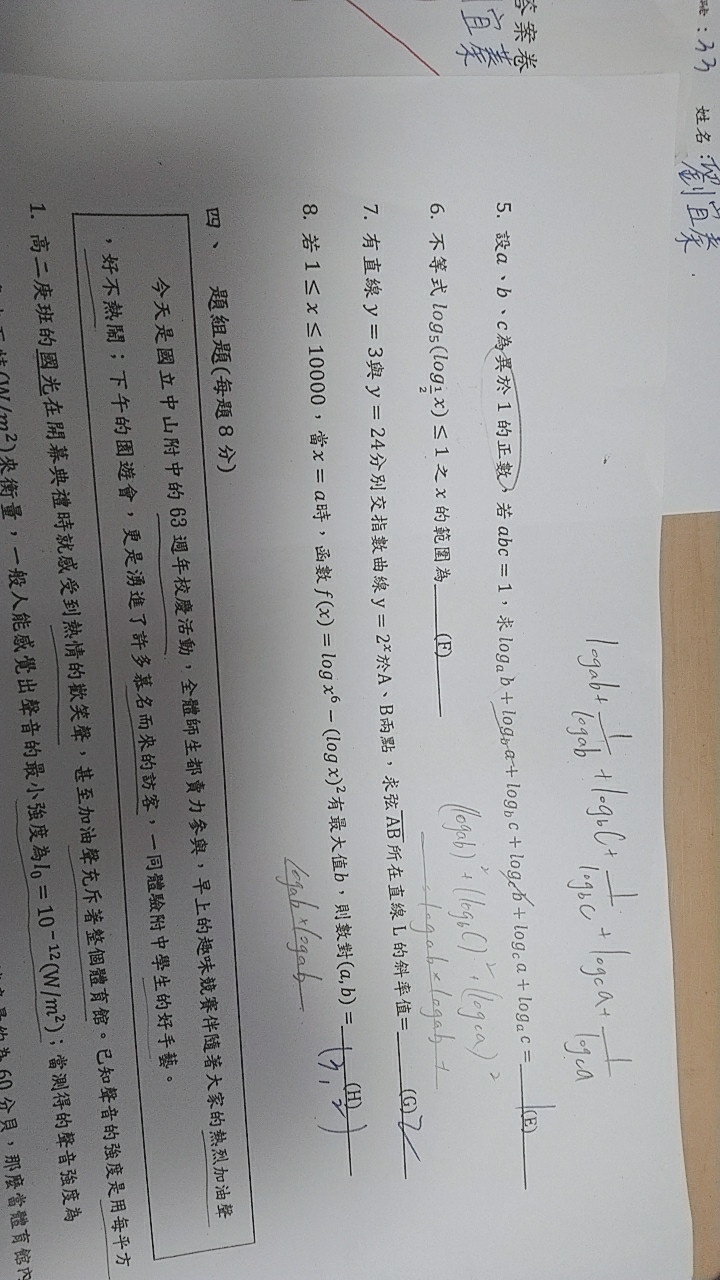 答案卷
姓名：
5. 設a、b、c為異於 1 的正數，若 abc = 1，求 logₐb + log_b a + log_b c + log_c b + log_c a + logₐc = ____(E)____
6. 不等式 log₅(log_{1/2} x) ≤ 1 之 x 的範圍為____(F)____
7. 有直線 y = 3與 y = 24分別交指數曲線 y = 2ˣ於A、B兩點，求弦 AB 所在直線 L 的斜率值=____(G)____ 2
8. 若 1 ≤ x ≤ 10000，當x = a時，函數 f(x) = log x⁶ − (log x)²有最大值b，則數對(a, b) = ____(H)____ (3, 2)
四、 題組題(每題 8 分)
今天是國立中山附中的 63 週年校慶活動，全體師生都賣力參與，早上的趣味競賽伴隨著大家的熱烈加油聲
，好不熱鬧；下午的園遊會，更是湧進了許多慕名而來的訪客，一同體驗附中學生的好手藝。
1. 高二庚班的國光在開幕典禮時就感受到熱情的歡笑聲，甚至加油聲充斥著整個體育館。已知聲音的強度是用每平方
(W/m²)來衡量，一般人能感覺出聲音的最小強度為I₀ = 10⁻¹²(W/m²)；當測得的聲音強度為
60 分貝，那麼當體育館內
logab + 1/logab + logbC + 1/logbC + logca + 1/logca
(logab)² + (logbC)² + (logca)²
logab × logab +
logab × logab